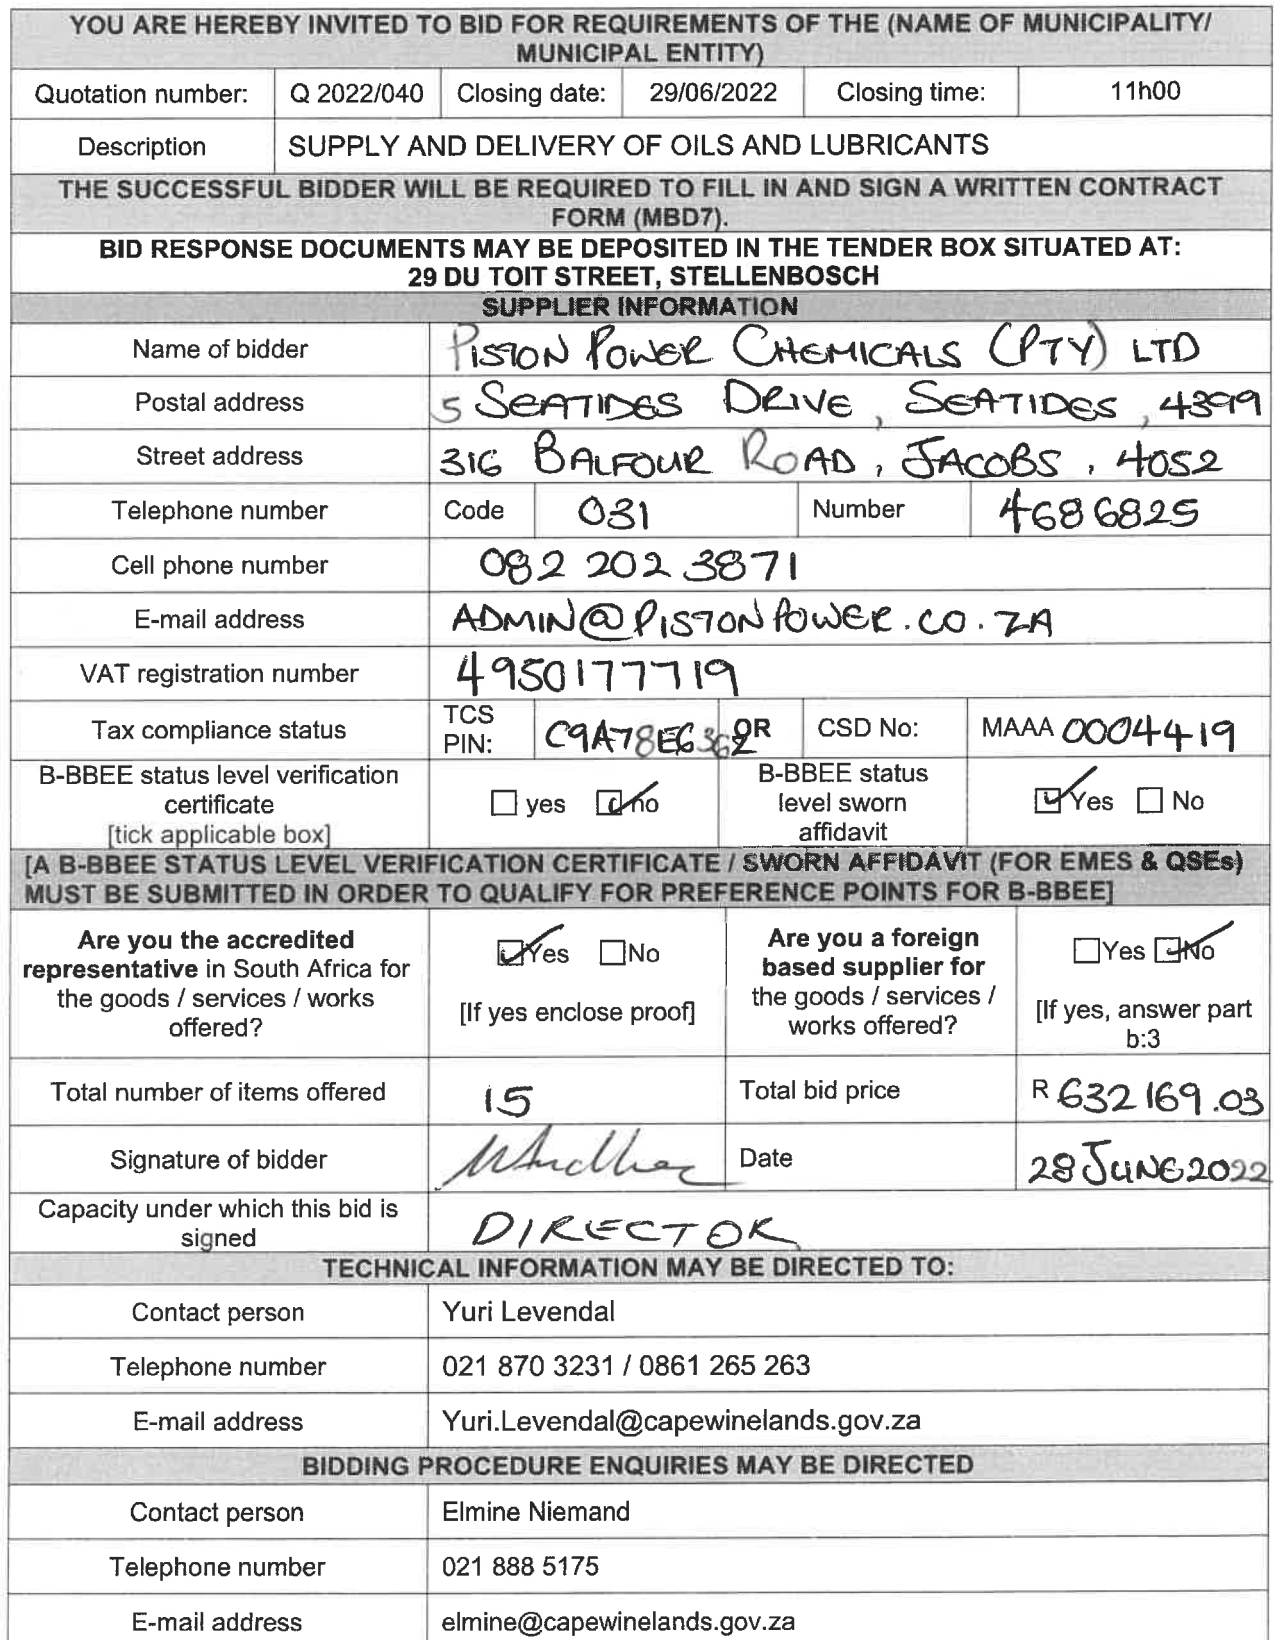 YOU ARE HEREBY INVITED TO BID FOR REQUIREMENTS OF THE (NAME OF MUNICIPALITY/
MUNICIPAL ENTITY)
Quotation number: Q 2022/040 Closing date: 29/06/2022 Closing time: 11h00
Description SUPPLY AND DELIVERY OF OILS AND LUBRICANTS
THE SUCCESSFUL BIDDER WILL BE REQUIRED TO FILL IN AND SIGN A WRITTEN CONTRACT
FORM (MBD7).
BID RESPONSE DOCUMENTS MAY BE DEPOSITED IN THE TENDER BOX SITUATED AT:
29 DU TOIT STREET, STELLENBOSCH
SUPPLIER INFORMATION
Name of bidder PISTON POWER CHEMICALS (PTY) LTD
Postal address 5 SEATIDES DRIVE, SEATIDES, 4399
Street address 316 BALFOUR ROAD, JACOBS, 4052
Telephone number Code 031 Number 4686825
Cell phone number 082 202 3871
E-mail address ADMIN@PISTONPOWER.CO.ZA
VAT registration number 4950177719
Tax compliance status TCS PIN: C9A78E6362 OR CSD No: MAAA 0004419
B-BBEE status level verification
certificate
[tick applicable box]
yes no
B-BBEE status
level sworn
affidavit
Yes No
[A B-BBEE STATUS LEVEL VERIFICATION CERTIFICATE / SWORN AFFIDAVIT (FOR EMES & QSEs)
MUST BE SUBMITTED IN ORDER TO QUALIFY FOR PREFERENCE POINTS FOR B-BBEE]
Are you the accredited
representative in South Africa for
the goods / services / works
offered?
Yes No
[If yes enclose proof]
Are you a foreign
based supplier for
the goods / services /
works offered?
Yes No
[If yes, answer part
b:3
Total number of items offered 15 Total bid price R 632 169.03
Signature of bidder Date 28 JUNE 2022
Capacity under which this bid is
signed
DIRECTOR
TECHNICAL INFORMATION MAY BE DIRECTED TO:
Contact person Yuri Levendal
Telephone number 021 870 3231 / 0861 265 263
E-mail address Yuri.Levendal@capewinelands.gov.za
BIDDING PROCEDURE ENQUIRIES MAY BE DIRECTED
Contact person Elmine Niemand
Telephone number 021 888 5175
E-mail address elmine@capewinelands.gov.za